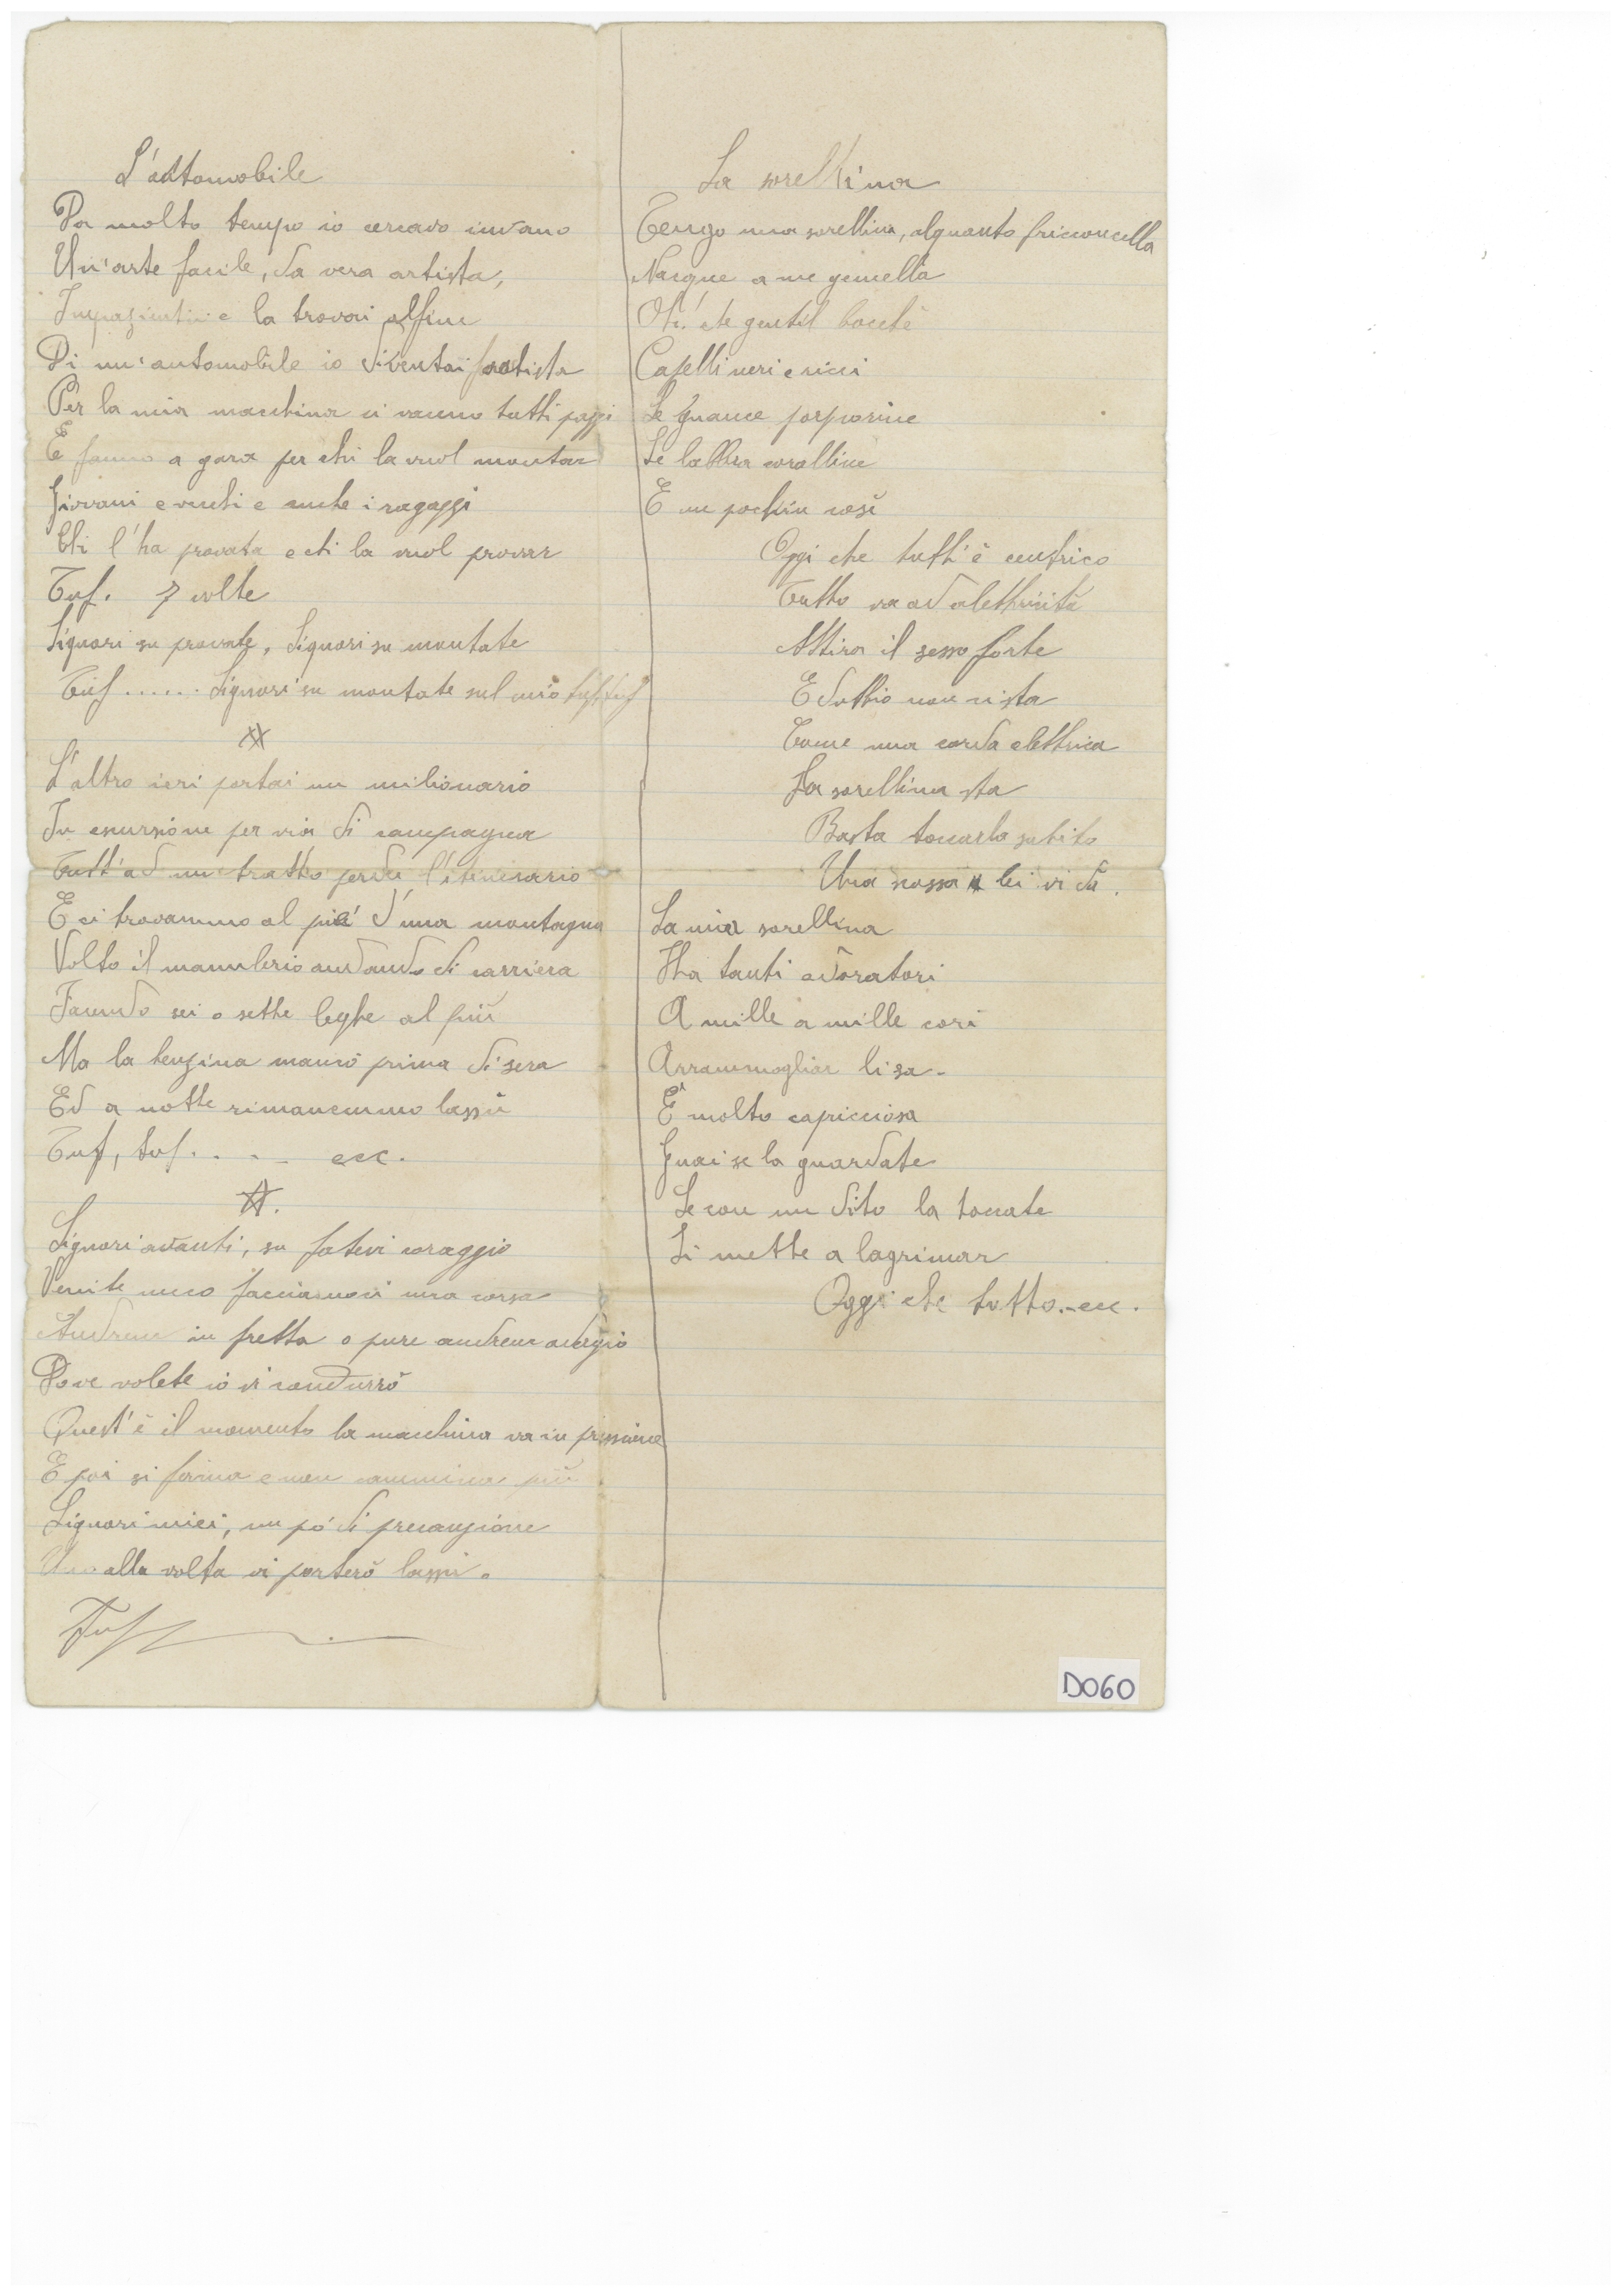 L'automobile
Da molto tempo io cercavo invano
Un'arte facile, da vera artista,
e la trovai alfine
Di un'automobile io diventai
Per la mia macchina ci vanno tutti pazzi
E fanno a gara per chi la vuol montar
Giovani e vecchi e anche i ragazzi
Chi l'ha provata e chi la vuol provar
Tuf. 7 volte
Signori su provate, Signori su montate
Tuf ...... Signori su montate sul mio tuf tuf
L'altro ieri portai un milionario
In escursione per via di campagna
Tutt'ad un tratto perdei l'itinerario
E ci trovammo al piè d'una montagna
Volto il manubrio andando di carriera
Facendo sei o sette leghe al più
Ma la benzina mancò prima di sera
Ed a notte rimanemmo lassù
Tuf, tuf. . . - ecc.
Signori avanti, su fatevi coraggio
Venite meco facciamoci una corsa
Andrem in fretta o pure andrem adagio
Dove volete io vi condurrò
Quest'è il momento la macchina va in pressione
E poi si ferma e non cammina più
Signori miei, un pò di precauzione
Uno alla volta vi porterò lassù.
Tuf
La sorellina
Tengo una sorellina, alquanto bricconcella
Nacque a me gemella
Oh! che gentil
Capelli neri e ricci
Le guance porporine
Le labbra coralline
E un pochin così
Oggi che tutt'è
Tutto va ad elettricità
Attira il sesso forte
E
Come una corda elettrica
La sorellina sta
Basta toccarla subito
Una scossa lei vi dà.
La mia sorellina
Ha tanti adoratori
A mille a mille cori
li sa.
È molto capricciosa
Guai se la guardate
Se con un dito la toccate
Si mette a lagrimar
Oggi che tutto.-ecc.
D060